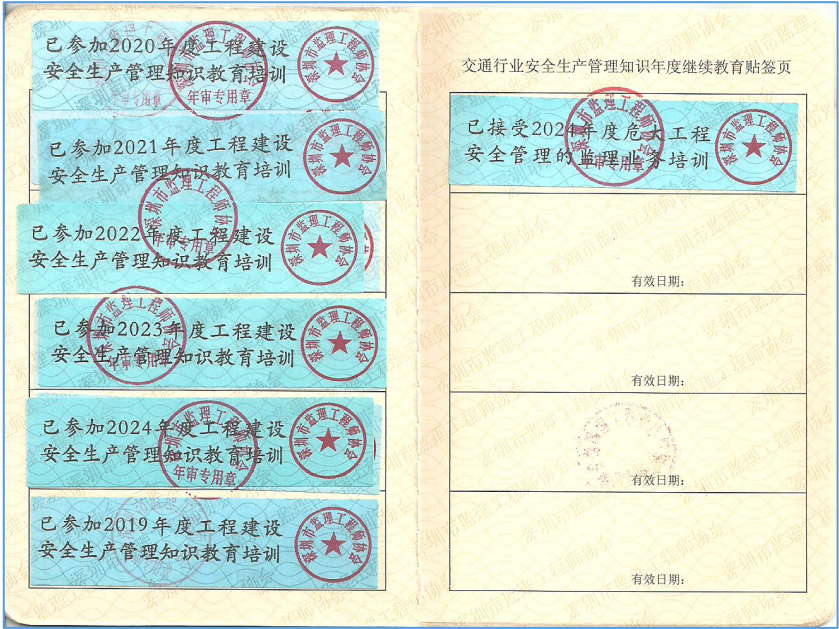 已参加2020年度工程建设
安全生产管理知识教育培训
深圳市监理工程师协会
年审专用章
深圳市监理工程师协会
已参加2021年度工程建设
安全生产管理知识教育培训
深圳市监理工程师协会
已参加2022年度工程建设
安全生产管理知识教育培训
深圳市监理工程师协会
年审专用章
深圳市监理工程师协会
已参加2023年度工程建设
安全生产管理知识教育培训
深圳市监理工程师协会
年审专用章
深圳市监理工程师协会
已参加2024年度工程建设
安全生产管理知识教育培训
深圳市监理工程师协会
年审专用章
深圳市监理工程师协会
已参加2019年度工程建设
安全生产管理知识教育培训
深圳市监理工程师协会
交通行业安全生产管理知识年度继续教育贴签页
已接受2024年度危大工程
安全管理的监理业务培训
深圳市监理工程师协会
年审专用章
深圳市监理工程师协会
有效日期：
有效日期：
有效日期：
有效日期：